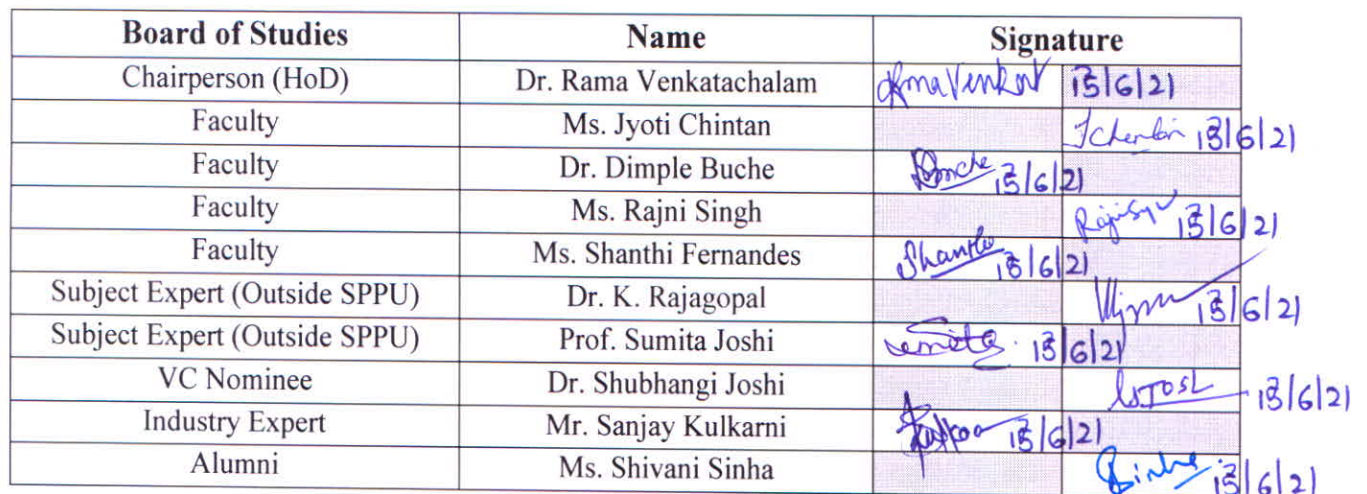 Board of Studies Name Signature
Chairperson (HoD) Dr. Rama Venkatachalam RamaVenkat /6/21
Faculty Ms. Jyoti Chintan /6/21
Faculty Dr. Dimple Buche /6/21
Faculty Ms. Rajni Singh /6/21
Faculty Ms. Shanthi Fernandes /6/21
Subject Expert (Outside SPPU) Dr. K. Rajagopal /6/21
Subject Expert (Outside SPPU) Prof. Sumita Joshi /6/21
VC Nominee Dr. Shubhangi Joshi /6/21
Industry Expert Mr. Sanjay Kulkarni /6/21
Alumni Ms. Shivani Sinha /6/21